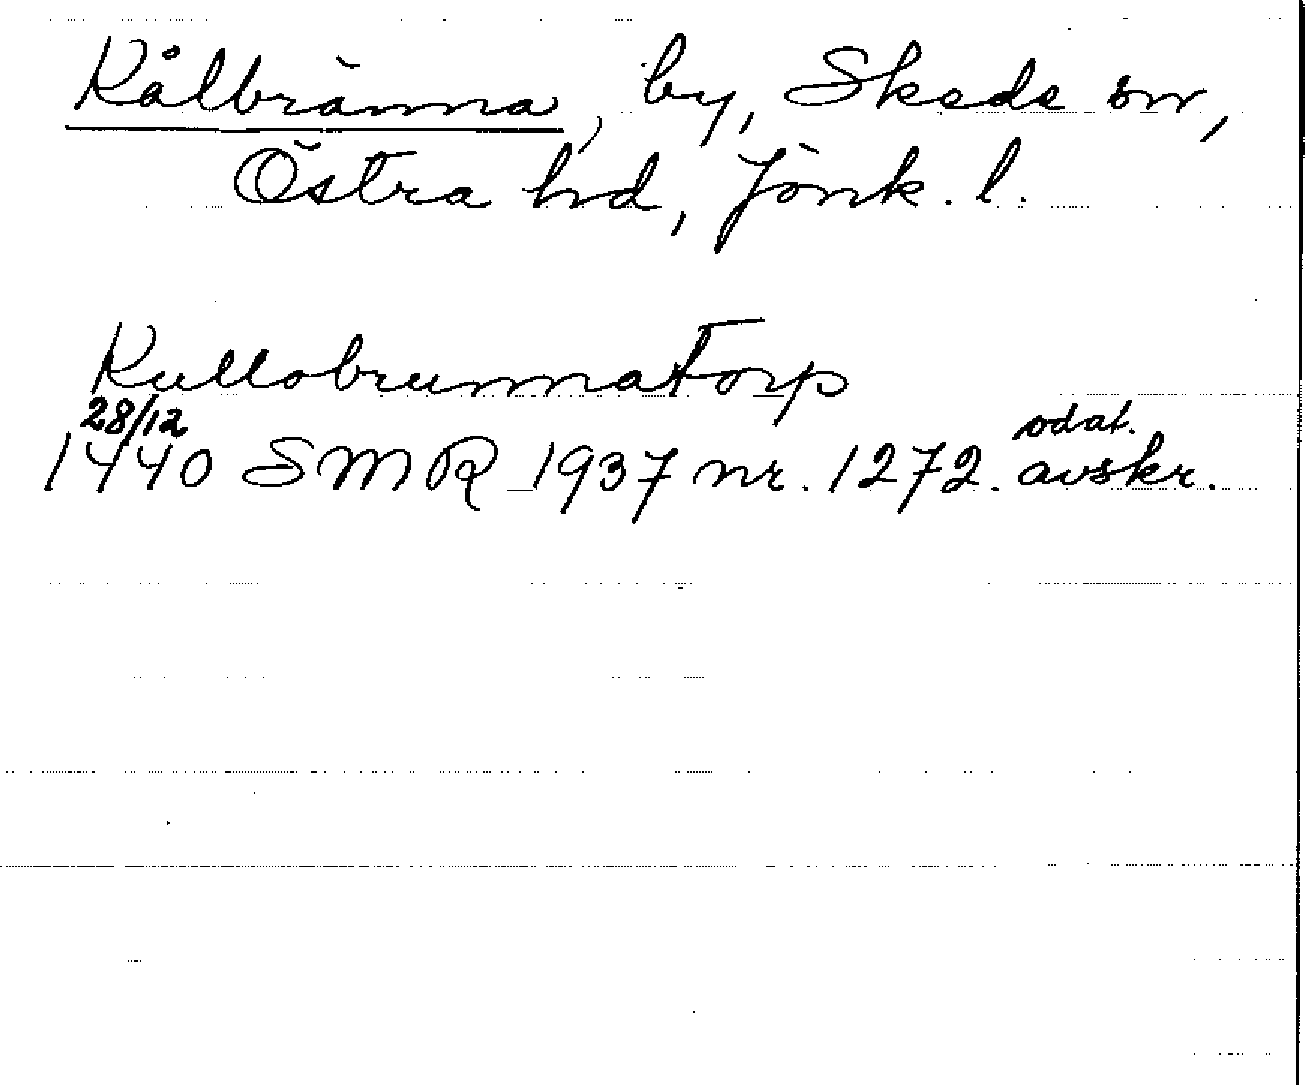 Kålbränna, by, Skede sn,
Östra hd, Jönk. l.
Kullobrunnatorp
28/12 odat.
1440 SMR 1937 nr. 1272. avskr.